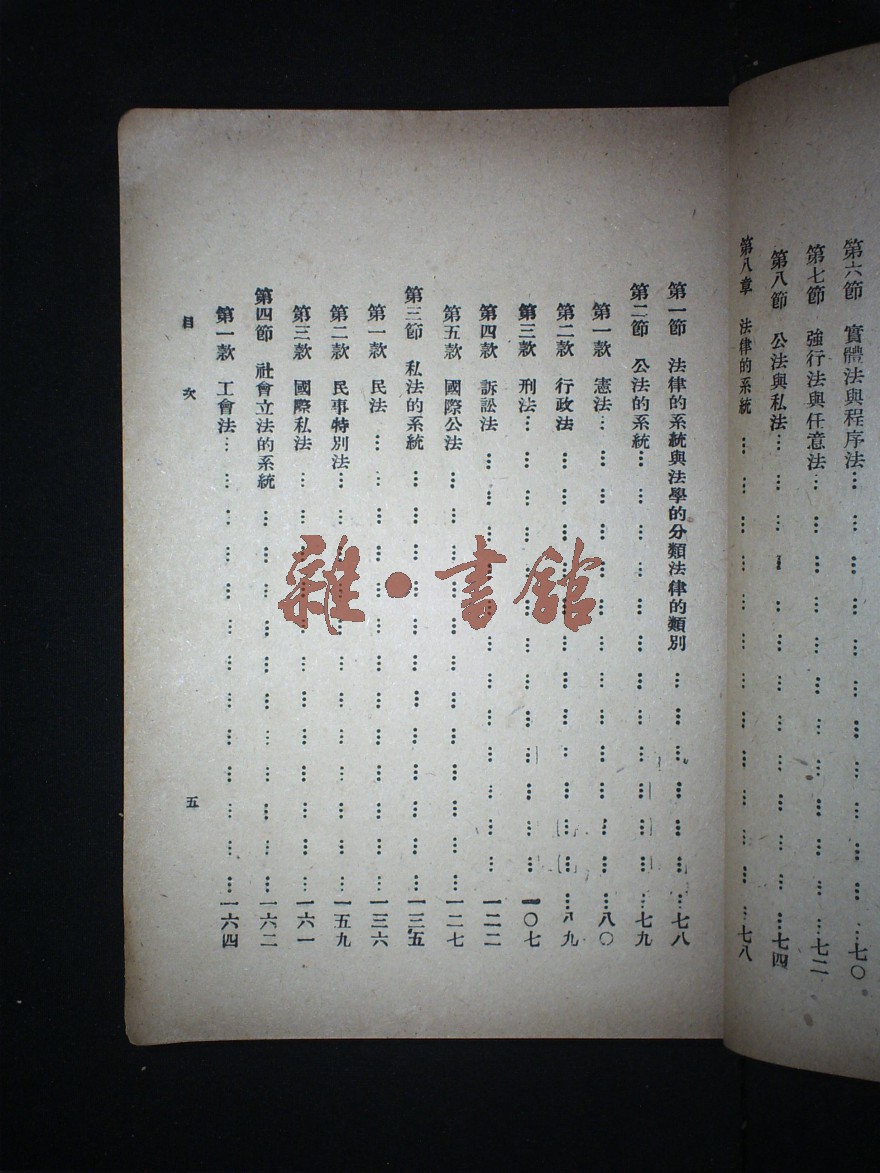 第六節　實體法與程序法………………………………七〇
第七節　強行法與任意法………………………………七二
第八節　公法與私法………………………………七四
第八章　法律的系統………………………………七八
第一節　法律的系統與法學的分類法律的類別………………………………七八
第二節　公法的系統………………………………七九
第一款　憲法………………………………八〇
第二款　行政法………………………………八九
第三款　刑法………………………………一〇七
第四款　訴訟法………………………………一二二
第五款　國際公法………………………………一二七
第三節　私法的系統………………………………一三五
第一款　民法………………………………一三六
第二款　民事特別法………………………………一五九
第三款　國際私法………………………………一六一
第四節　社會立法的系統………………………………一六二
第一款　工會法………………………………一六四
目次　五
雜·書館